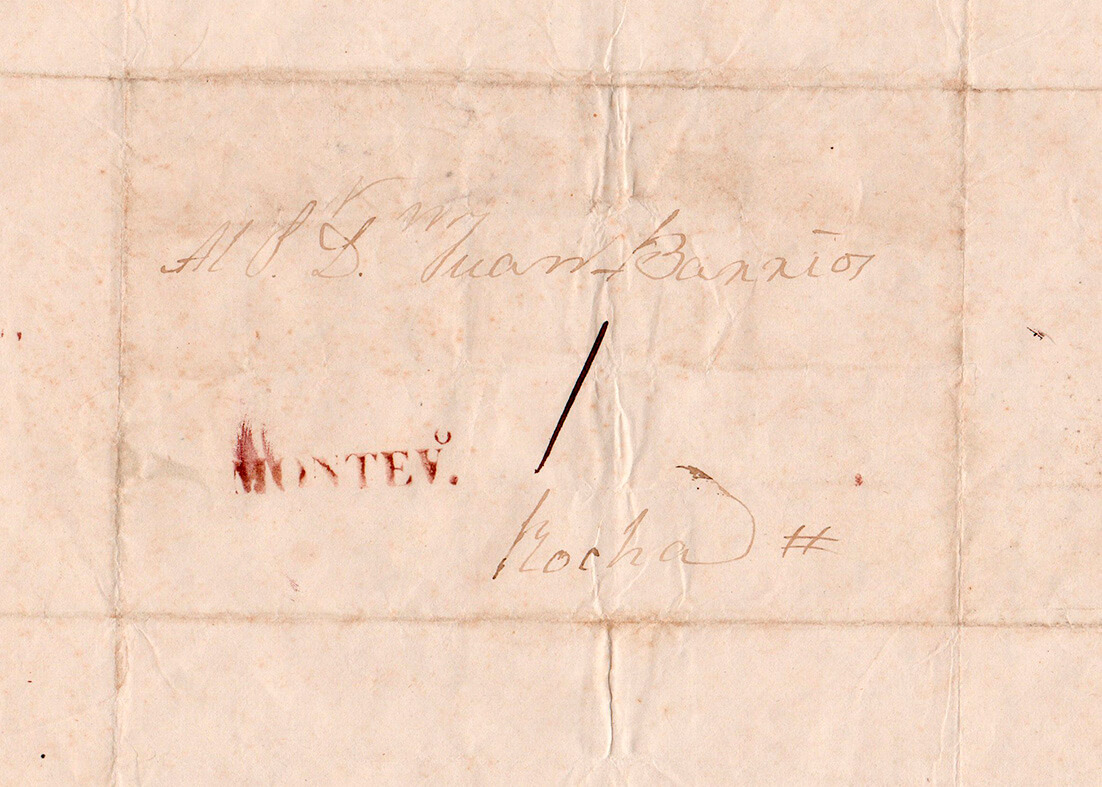 Al S. D. Juan Barrios
MONTEVº.
Rocha #